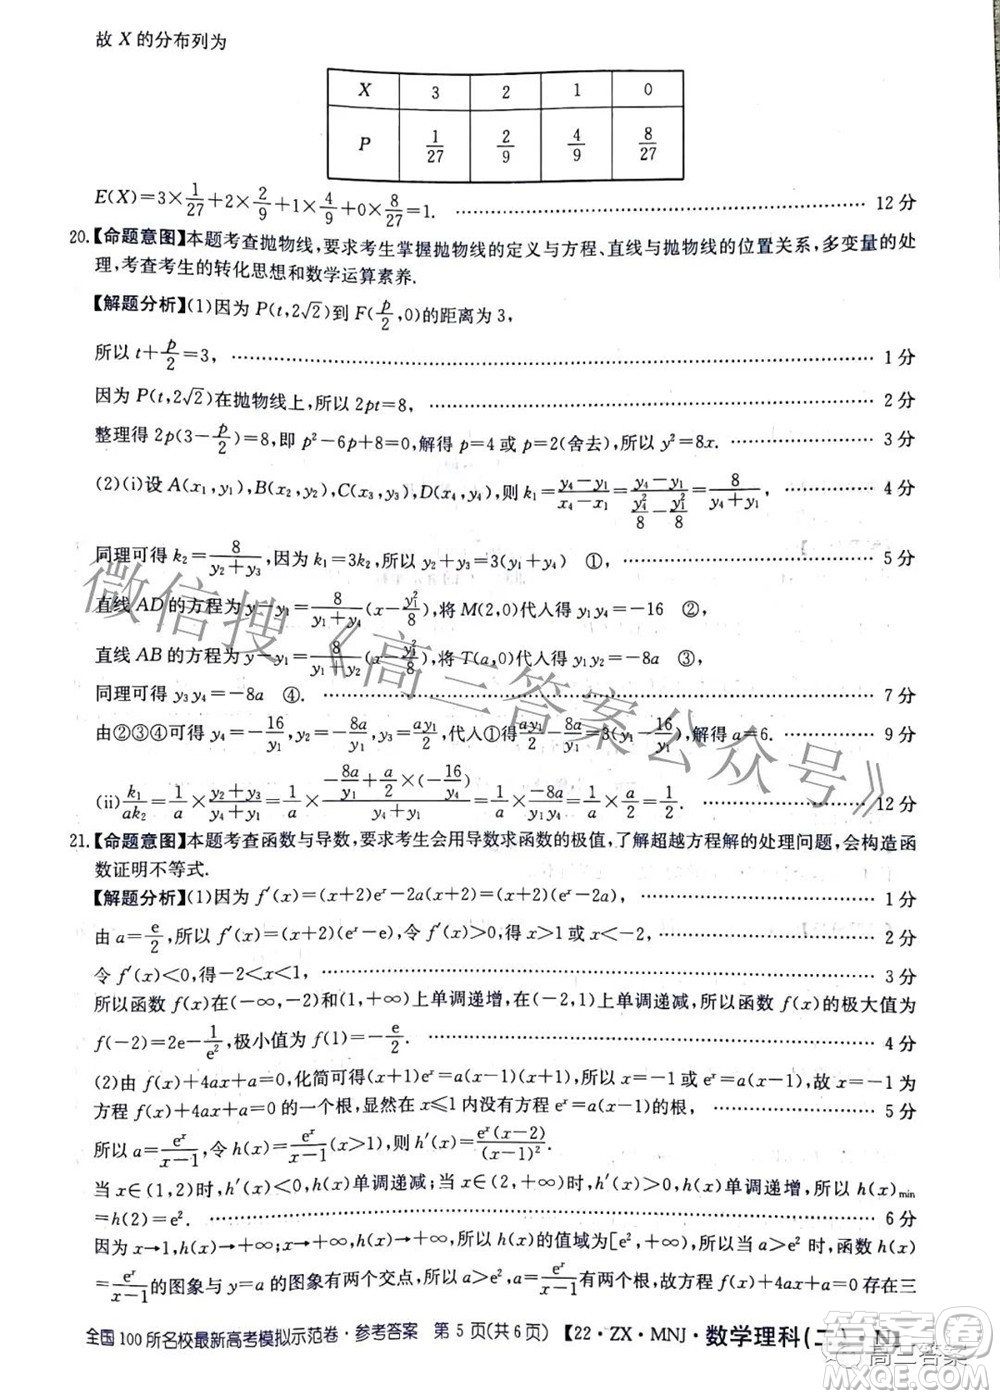 故 X 的分布列为
X 3 2 1 0
P 1/27 2/9 4/9 8/27
E(X)=3×1/27+2×2/9+1×4/9+0×8/27=1. ………………………………… 12 分
20.【命题意图】本题考查抛物线,要求考生掌握抛物线的定义与方程、直线与抛物线的位置关系,多变量的处
理,考查考生的转化思想和数学运算素养.
【解题分析】(1)因为 P(t,2√2)到 F(p/2,0)的距离为 3,
所以 t+p/2=3, ………………………………… 1 分
因为 P(t,2√2)在抛物线上,所以 2pt=8, ………………………………… 2 分
整理得 2p(3-p/2)=8,即 p²-6p+8=0,解得 p=4 或 p=2(舍去),所以 y²=8x. ………… 3 分
(2)(i)设 A(x₁,y₁),B(x₂,y₂),C(x₃,y₃),D(x₄,y₄),则 k₁=(y₄-y₁)/(x₄-x₁)=(y₄-y₁)/(y₄²/8-y₁²/8)=8/(y₄+y₁), ………… 4 分
同理可得 k₂=8/(y₂+y₃),因为 k₁=3k₂,所以 y₂+y₃=3(y₄+y₁) ①, ………… 5 分
直线 AD 的方程为 y-y₁=8/(y₁+y₄)(x-y₁²/8),将 M(2,0)代入得 y₁y₄=-16 ②,
直线 AB 的方程为 y-y₁=8/(y₁+y₂)(x-y₁²/8),将 T(a,0)代入得 y₁y₂=-8a ③,
同理可得 y₃y₄=-8a ④. ………………………………… 7 分
由②③④可得 y₄=-16/y₁,y₂=-8a/y₁,y₃=ay₁/2,代入①得ay₁/2-8a/y₁=3(y₁-16/y₁),解得 a=6. ………… 9 分
(ii)k₁/ak₂=1/a×(y₂+y₃)/(y₄+y₁)=1/a×(-8a/y₁+a/2×(-16/y₄))/(y₄+y₁)=1/a×-8a/y₁y₄=1/a×a/2=1/2. ………… 12 分
21.【命题意图】本题考查函数与导数,要求考生会用导数求函数的极值,了解超越方程解的处理问题,会构造函
数证明不等式.
【解题分析】(1)因为 f′(x)=(x+2)eˣ-2a(x+2)=(x+2)(eˣ-2a), ………… 1 分
由 a=e/2,所以 f′(x)=(x+2)(eˣ-e),令 f′(x)>0,得 x>1 或 x<-2, ………… 2 分
令 f′(x)<0,得-2<x<1, ………………………………… 3 分
所以函数 f(x)在(-∞,-2)和(1,+∞)上单调递增,在(-2,1)上单调递减,所以函数 f(x)的极大值为
f(-2)=2e-1/e²,极小值为 f(1)=-e/2. ………………………………… 4 分
(2)由 f(x)+4ax+a=0,化简可得(x+1)eˣ=a(x-1)(x+1),所以(x+1)[eˣ-a(x-1)]=0,故 x=-1 为
方程 f(x)+4ax+a=0 的一个根,显然在 x⩽1 内没有方程 eˣ=a(x-1)的根, ………… 5 分
所以 a=eˣ/(x-1),令 h(x)=eˣ/(x-1)(x>1),则 h′(x)=eˣ(x-2)/(x-1)².
当 x∈(1,2)时,h′(x)<0,h(x)单调递减;当 x∈(2,+∞)时,h′(x)>0,h(x)单调递增,所以 h(x)min
=h(2)=e². ………………………………… 6 分
因为 x→1,h(x)→+∞;x→+∞,h(x)→+∞,所以 h(x)的值域为[e²,+∞),所以当 a>e²时,函数 h(x)
=eˣ/(x-1)的图象与 y=a 的图象有两个交点,所以 a>e²时,eˣ=a(x-1)有两个根,故方程 f(x)+4ax+a=0 存在三
全国 100 所名校最新高考模拟示范卷·参考答案 第 5 页(共 6 页) 【22·ZX·MNJ·数学理科(二)·N】
微信搜《高三答案公众号》
高三答案